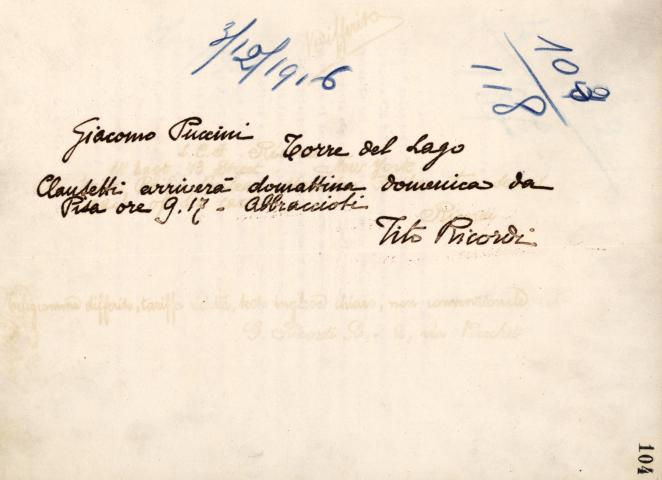 3/12/1916
108
118
Giacomo Puccini Torre del Lago
Clausetti arriverà domattina domenica da
Pisa ore 9.17 - Abbraccioti
Tito Ricordi
104